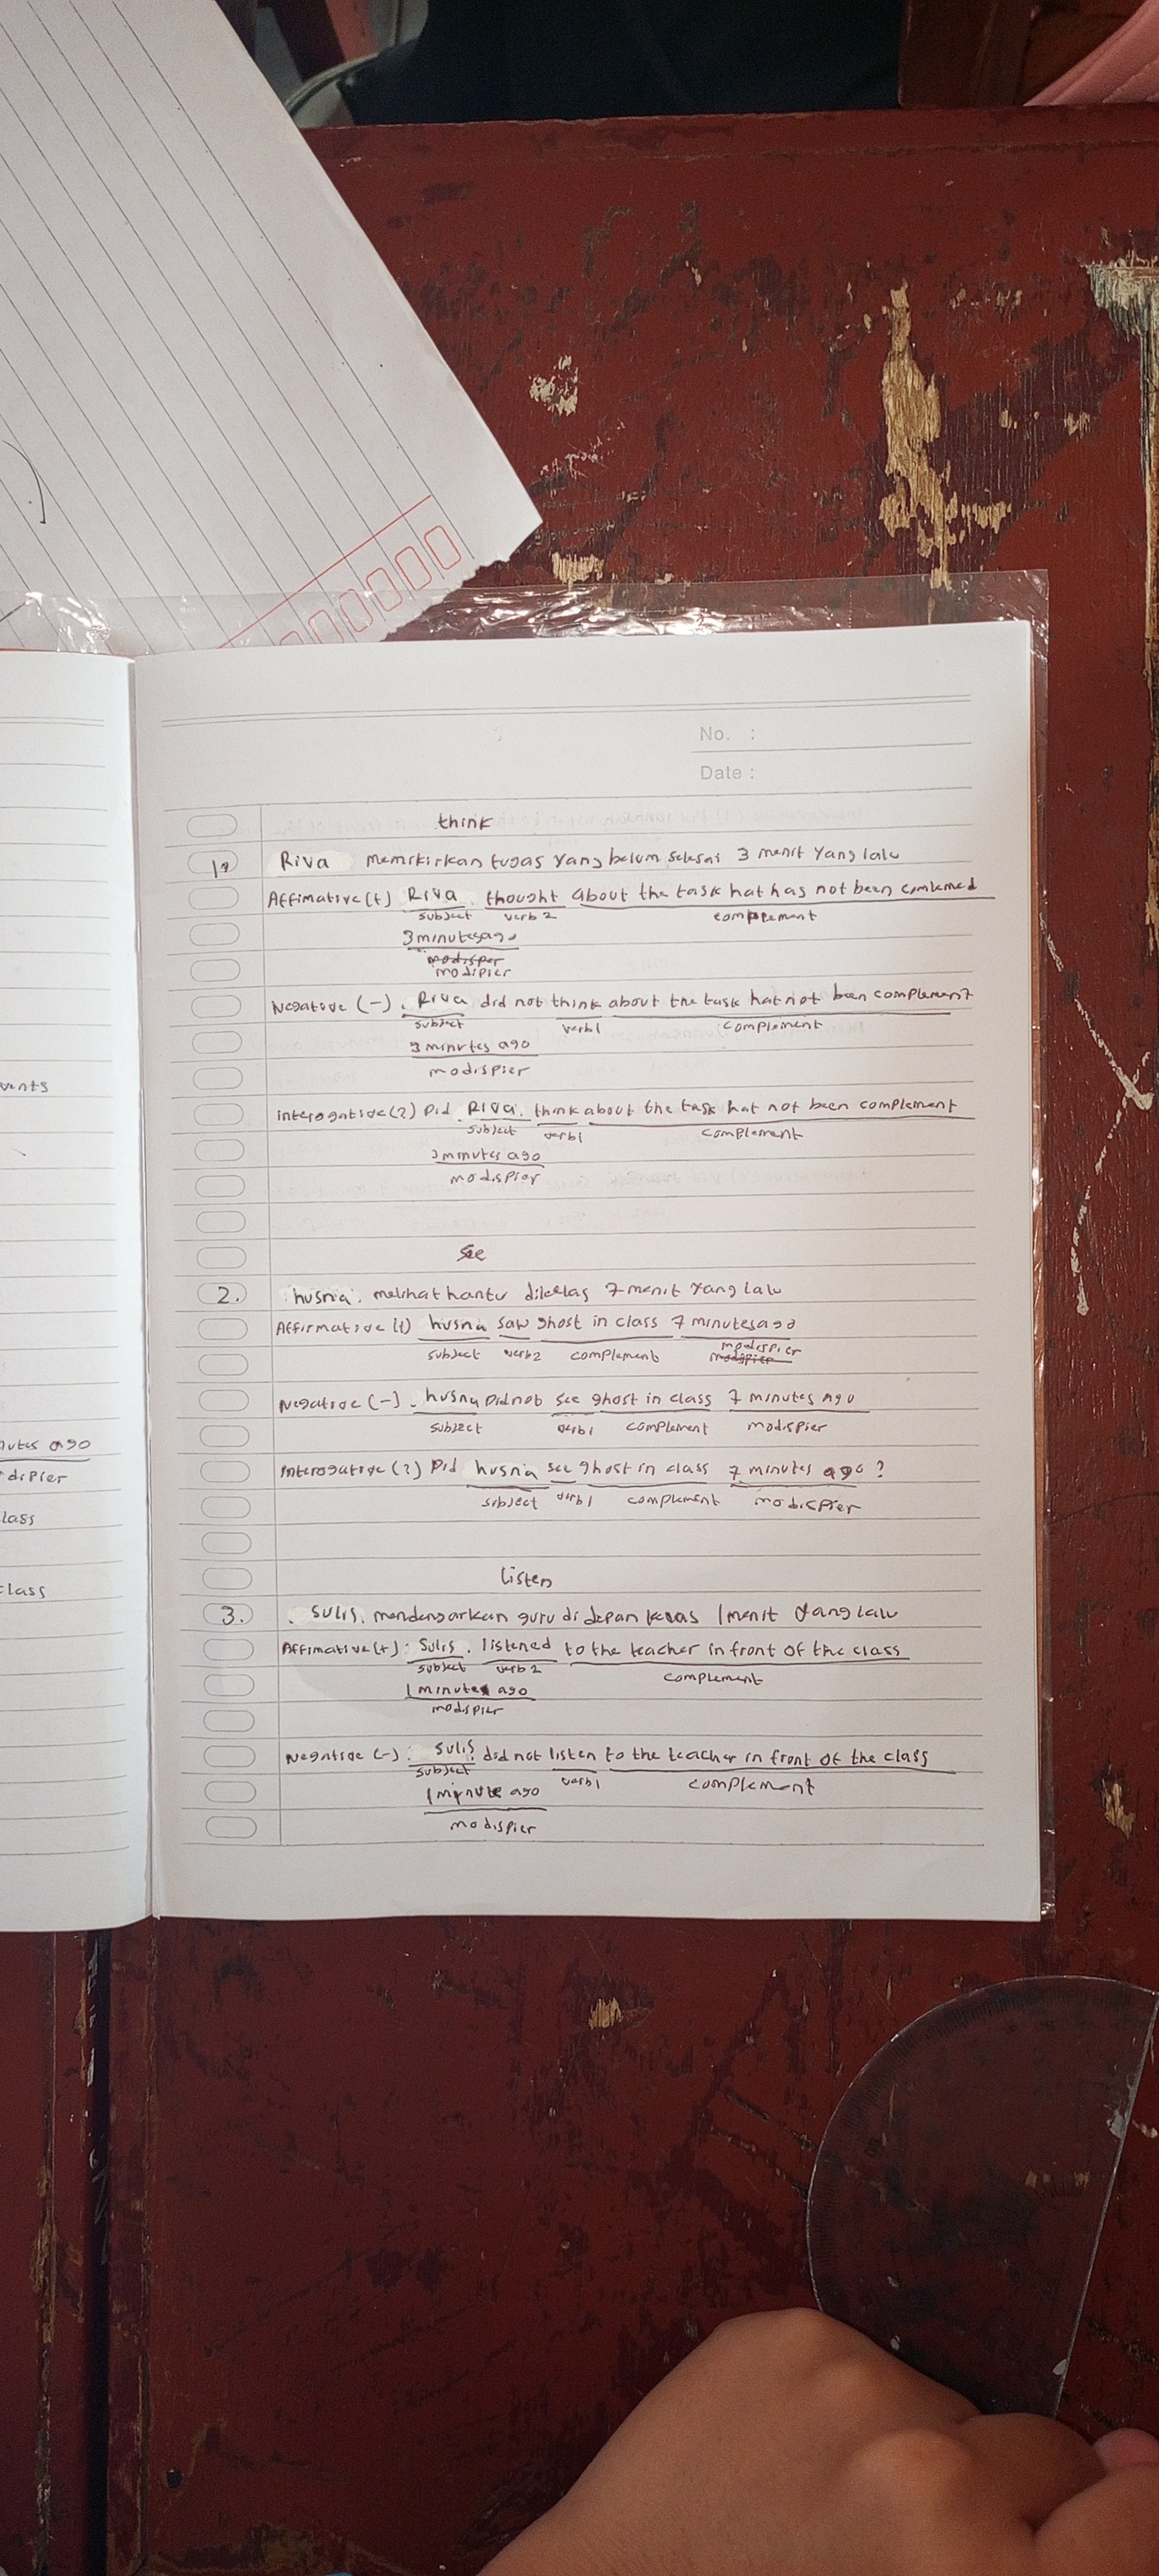 No. :
Date :
think
1. Riva memikirkan tugas yang belum selesai 3 menit yang lalu
Affimative (+) Riva thought about the task hat has not been comlemed
subject verb 2 complement
3 minutes ago
modispier
modipier
Negative (-). Riva did not think about the task hat not been complement
subject verb1 complement
3 minutes ago
modispier
interogative (?) Did Riva think about the task hat not been complement
subject verb1 complement
3 minutes ago
modispier
see
2. husna. melihat hantu dikelas 7 menit yang lalu
Affirmative (+) husna saw ghost in class 7 minutes ago
subject verb2 complement modispier
modipier
Negative (-). husna Did not see ghost in class 7 minutes ago
subject verb1 complement modispier
interogative (?) Did husna see ghost in class 7 minutes ago ?
subject verb1 complement modispier
listen
3. Sulis. mendengarkan guru di depan kelas 1 menit yang lalu
Affirmative (+): Sulis. listened to the teacher in front of the class
subject verb2 complement
1 minute ago
modispier
Negative (-): Sulis did not listen to the teacher in front of the class
subject verb1 complement
1 minute ago
modispier
vents
nutes ago
difier
lass
class